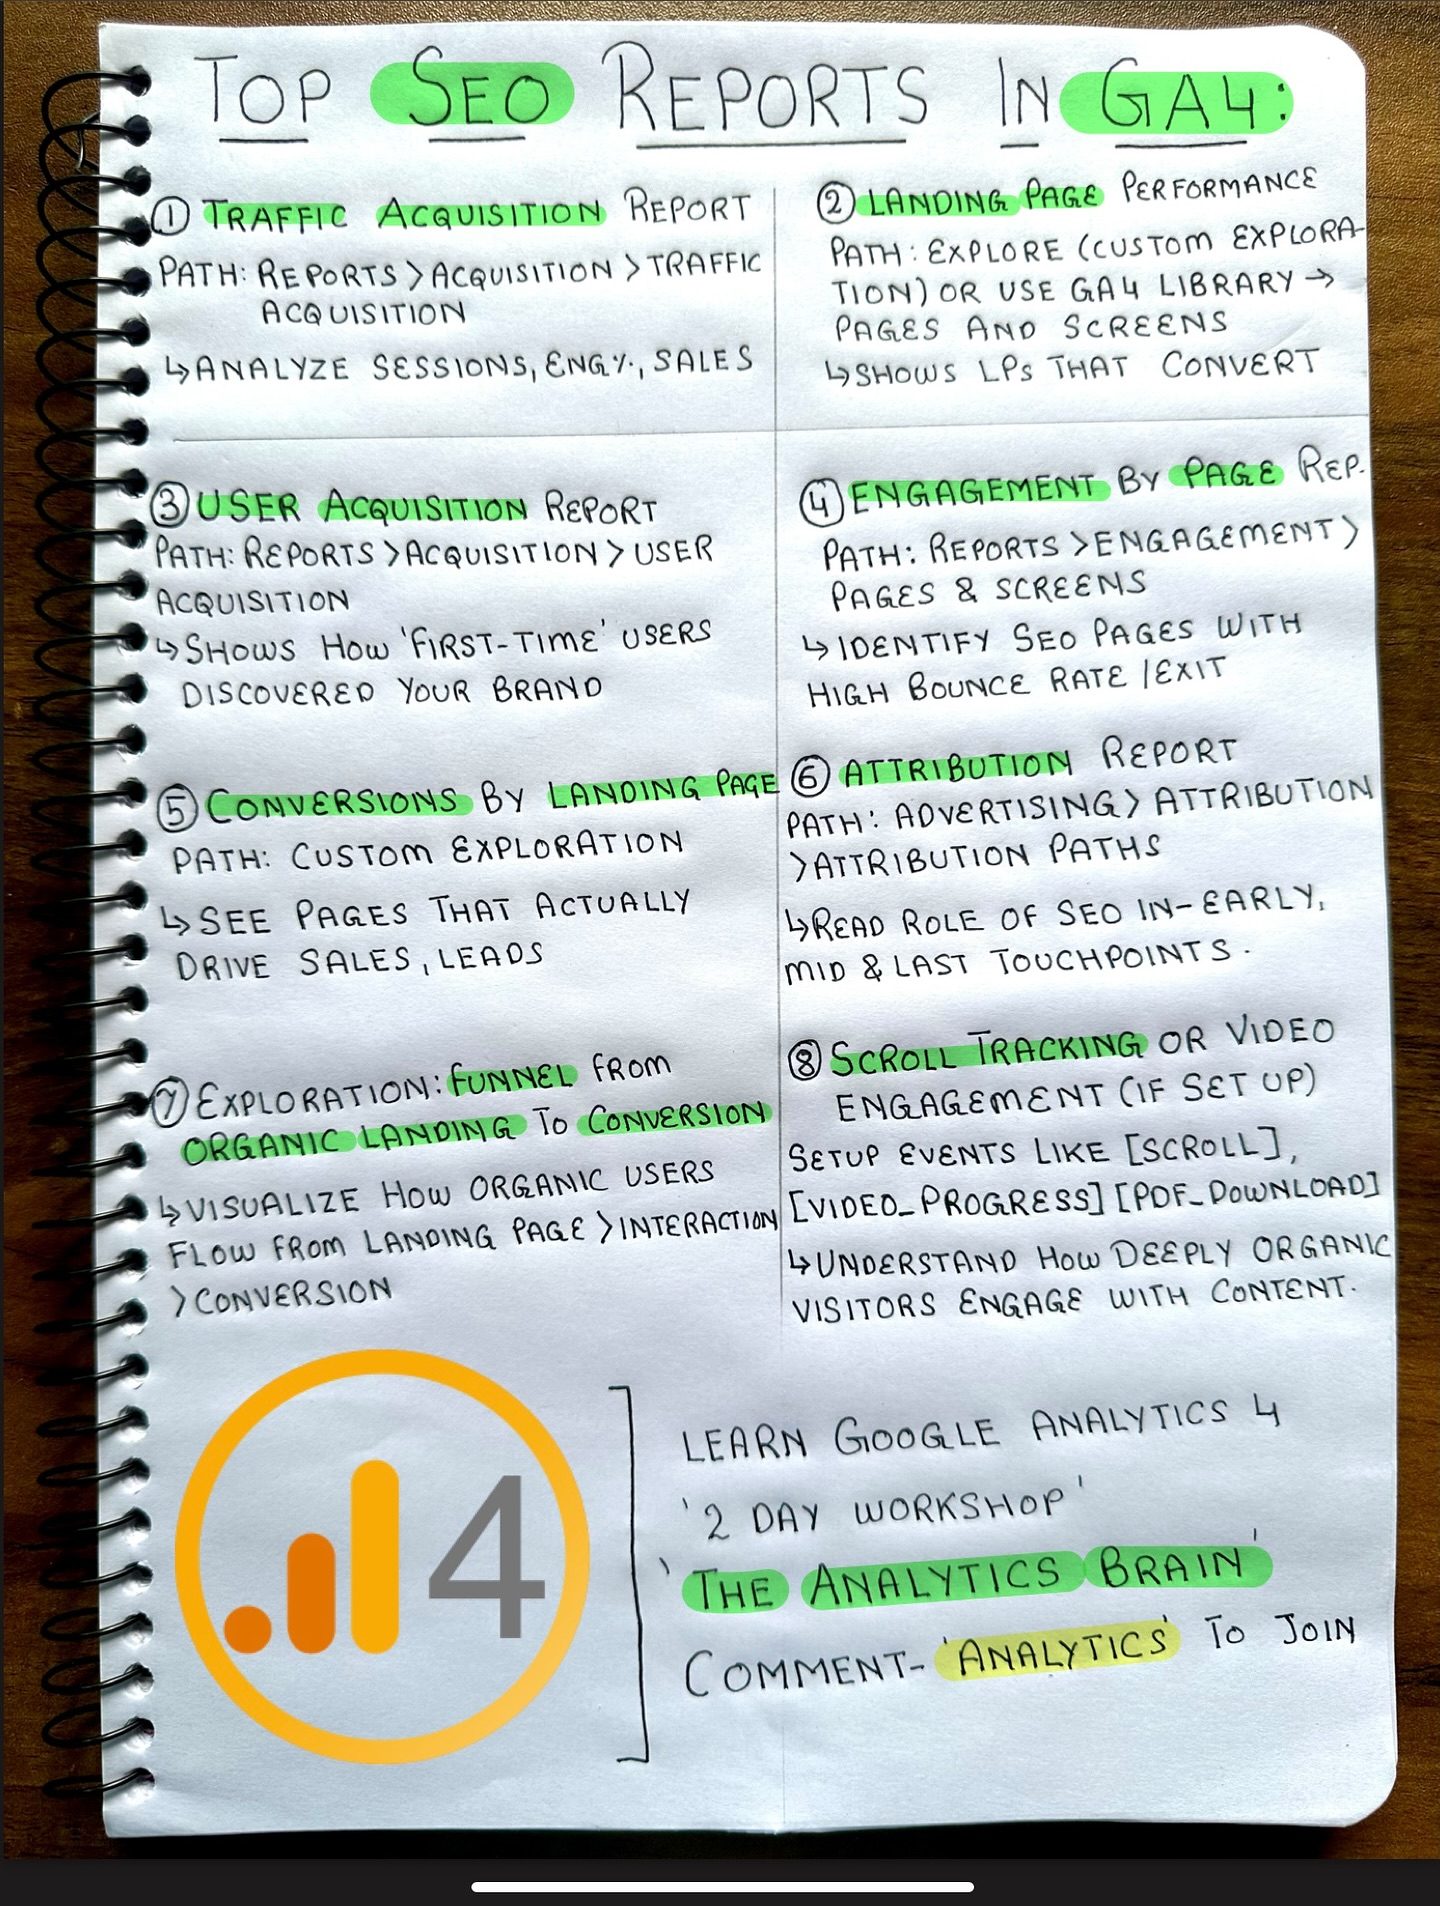 TOP SEO REPORTS IN GA4:
① TRAFFIC ACQUISITION REPORT
PATH: REPORTS > ACQUISITION > TRAFFIC
ACQUISITION
↳ ANALYZE SESSIONS, ENG%, SALES
② LANDING PAGE PERFORMANCE
PATH: EXPLORE (CUSTOM EXPLORA-
TION) OR USE GA4 LIBRARY →
PAGES AND SCREENS
↳ SHOWS LPs THAT CONVERT
③ USER ACQUISITION REPORT
PATH: REPORTS > ACQUISITION > USER
ACQUISITION
↳ SHOWS HOW 'FIRST-TIME' USERS
DISCOVERED YOUR BRAND
④ ENGAGEMENT BY PAGE REP.
PATH: REPORTS > ENGAGEMENT >
PAGES & SCREENS
↳ IDENTIFY SEO PAGES WITH
HIGH BOUNCE RATE / EXIT
⑤ CONVERSIONS BY LANDING PAGE
PATH: CUSTOM EXPLORATION
↳ SEE PAGES THAT ACTUALLY
DRIVE SALES, LEADS
⑥ ATTRIBUTION REPORT
PATH: ADVERTISING > ATTRIBUTION
> ATTRIBUTION PATHS
↳ READ ROLE OF SEO IN-EARLY,
MID & LAST TOUCHPOINTS.
⑦ EXPLORATION: FUNNEL FROM
ORGANIC LANDING TO CONVERSION
↳ VISUALIZE HOW ORGANIC USERS
FLOW FROM LANDING PAGE > INTERACTION
> CONVERSION
⑧ SCROLL TRACKING OR VIDEO
ENGAGEMENT (IF SET UP)
SETUP EVENTS LIKE [SCROLL],
[VIDEO_PROGRESS] [PDF_DOWNLOAD]
↳ UNDERSTAND HOW DEEPLY ORGANIC
VISITORS ENGAGE WITH CONTENT.
4
LEARN GOOGLE ANALYTICS 4
'2 DAY WORKSHOP'
'THE ANALYTICS BRAIN'
COMMENT- 'ANALYTICS' TO JOIN